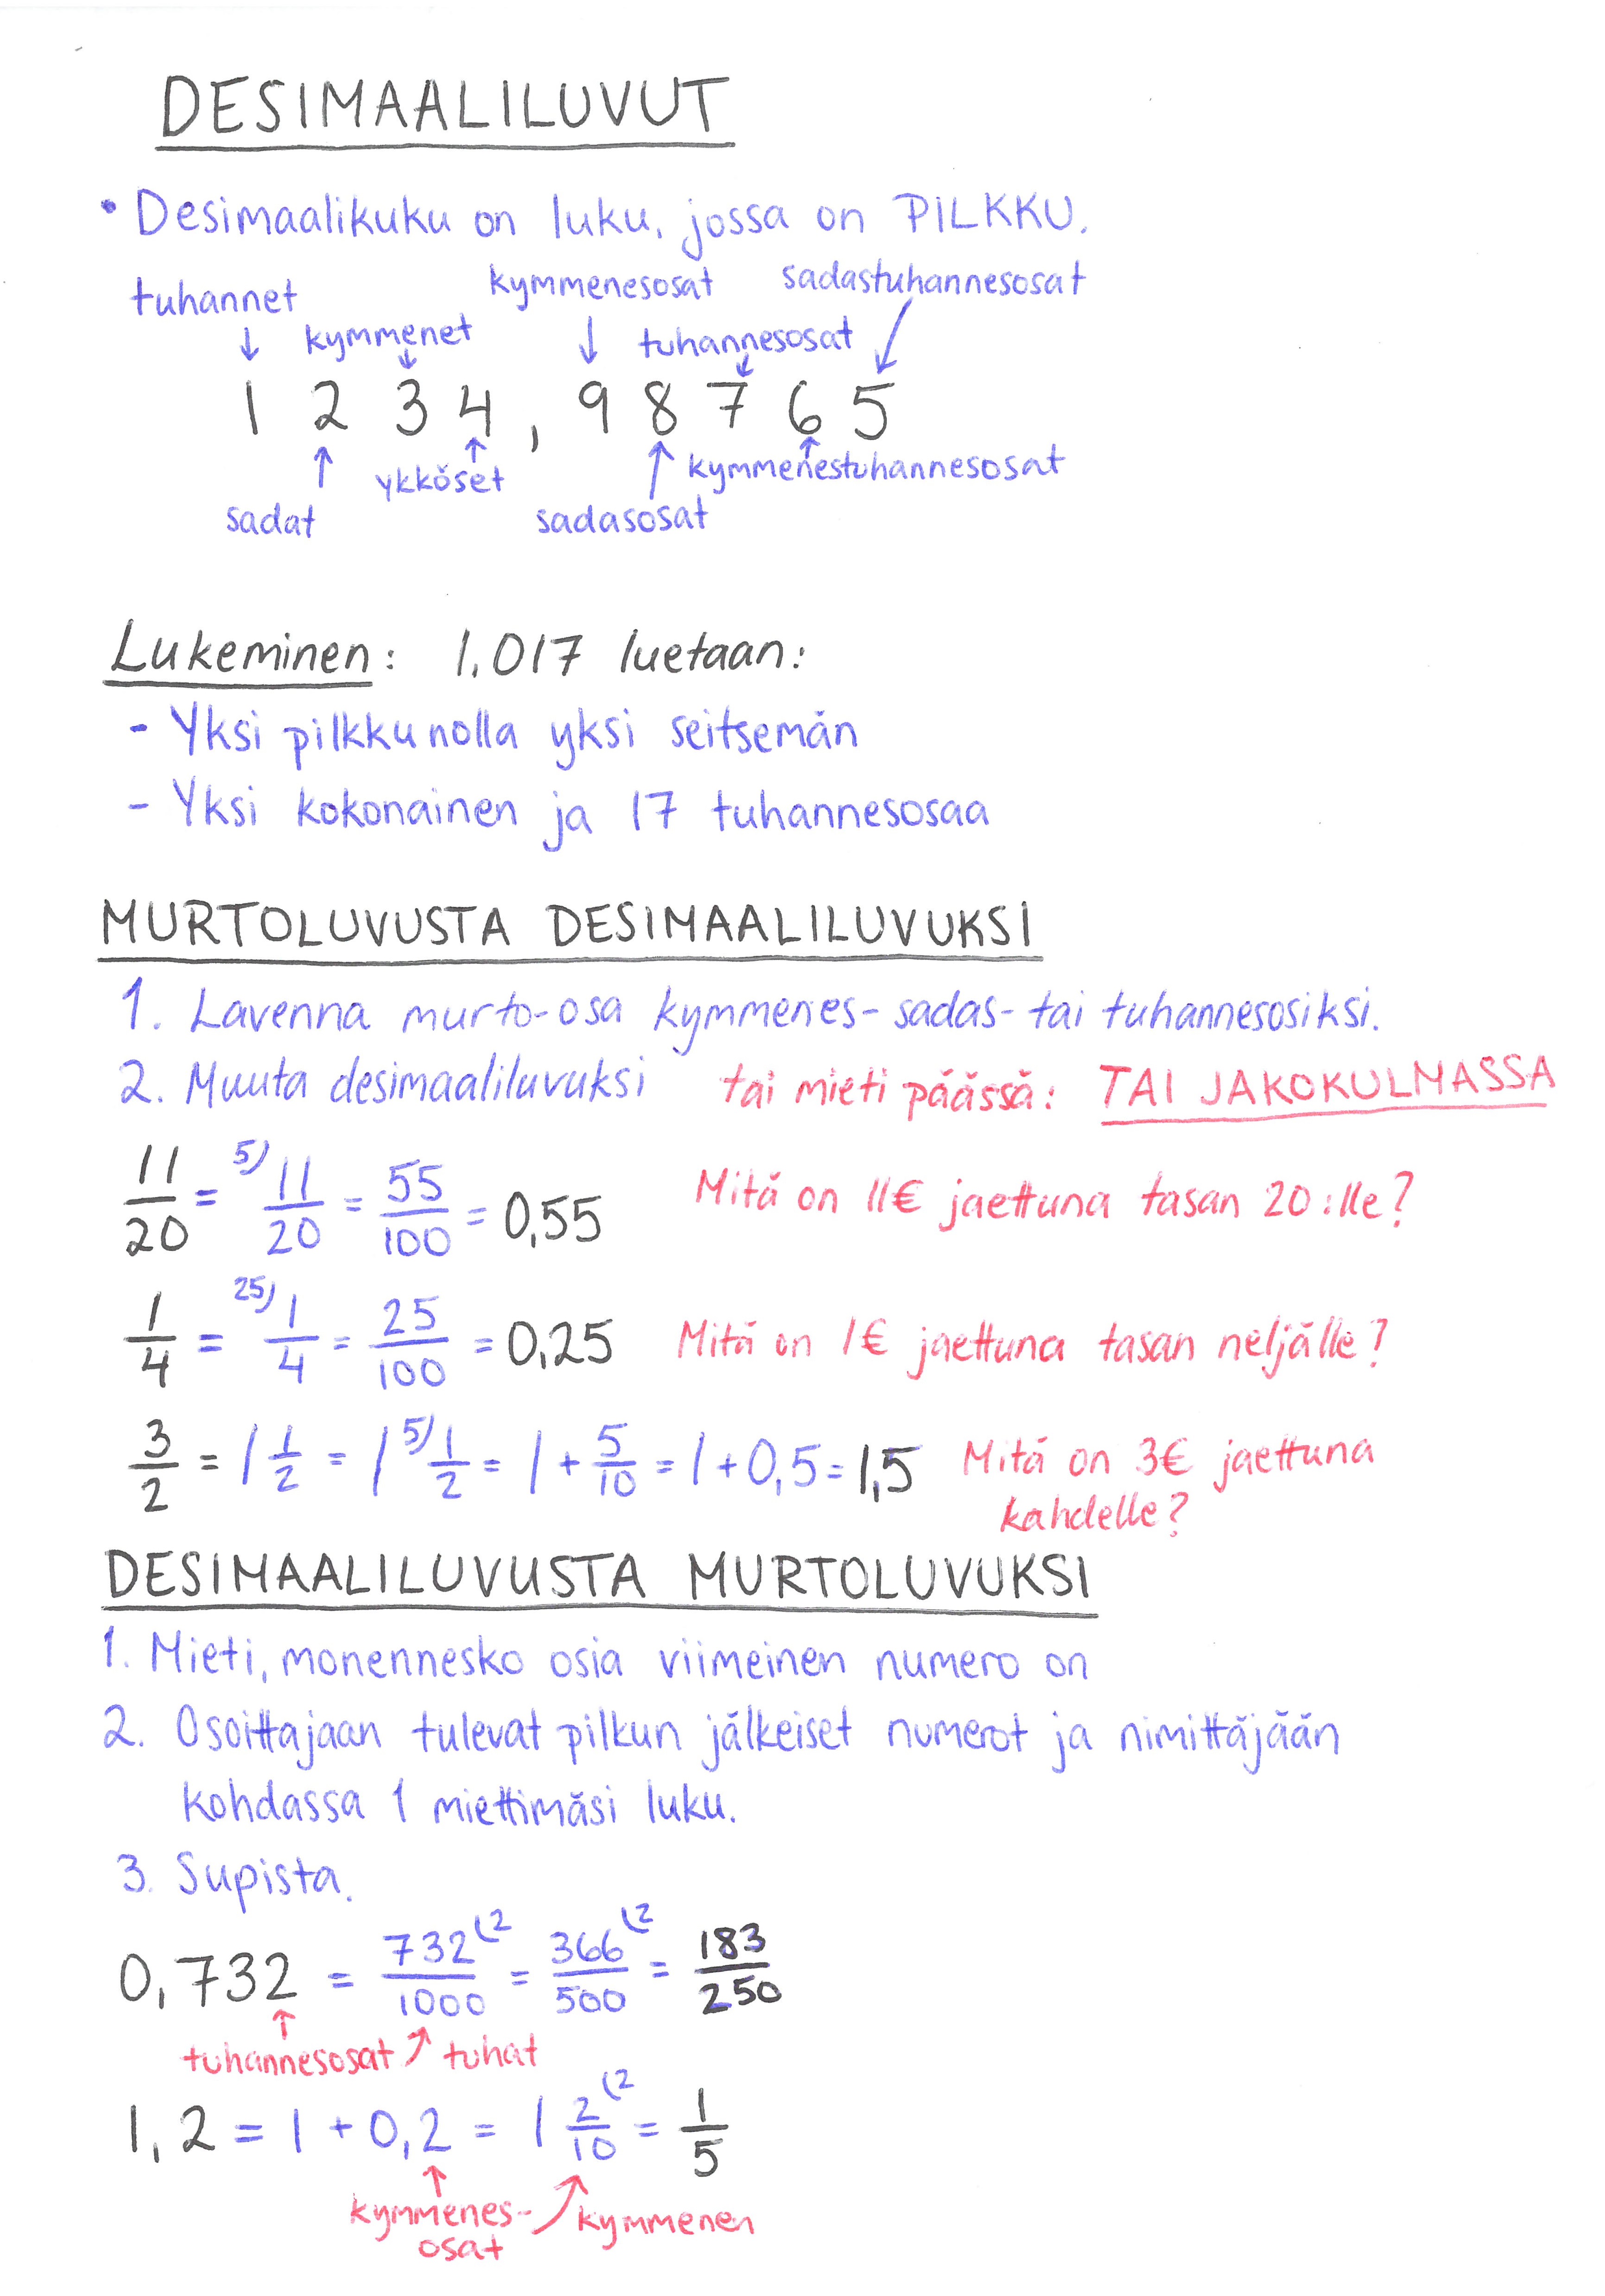 DESIMAALILUVUT
• Desimaalikuku on luku, jossa on PILKKU.
tuhannet kymmenesosat sadastuhannesosat
kymmenet tuhannesosat
1 2 3 4 , 9 8 7 6 5
ykköset kymmenestuhannesosat
sadat sadasosat
Lukeminen: 1,017 luetaan:
- Yksi pilkku nolla yksi seitsemän
- Yksi kokonainen ja 17 tuhannesosaa
MURTOLUVUSTA DESIMAALILUVUKSI
1. Lavenna murto-osa kymmenes- sadas- tai tuhannesosiksi.
2. Muuta desimaaliluvuksi tai mieti päässä: TAI JAKOKULMASSA
11/20 = 5) 11/20 = 55/100 = 0,55 Mitä on 11€ jaettuna tasan 20:lle?
1/4 = 25) 1/4 = 25/100 = 0,25 Mitä on 1€ jaettuna tasan neljälle?
3/2 = 1 1/2 = 1 5) 1/2 = 1 + 5/10 = 1 + 0,5 = 1,5 Mitä on 3€ jaettuna
kahdelle?
DESIMAALILUVUSTA MURTOLUVUKSI
1. Mieti, monennesko osia viimeinen numero on
2. Osoittajaan tulevat pilkun jälkeiset numerot ja nimittäjään
kohdassa 1 miettimäsi luku.
3. Supista.
0,732 = 732/1000 (2 = 366/500 (2 = 183/250
tuhannesosat tuhat
1,2 = 1 + 0,2 = 1 2/10 (2 = 1/5
kymmenes- kymmenen
osat